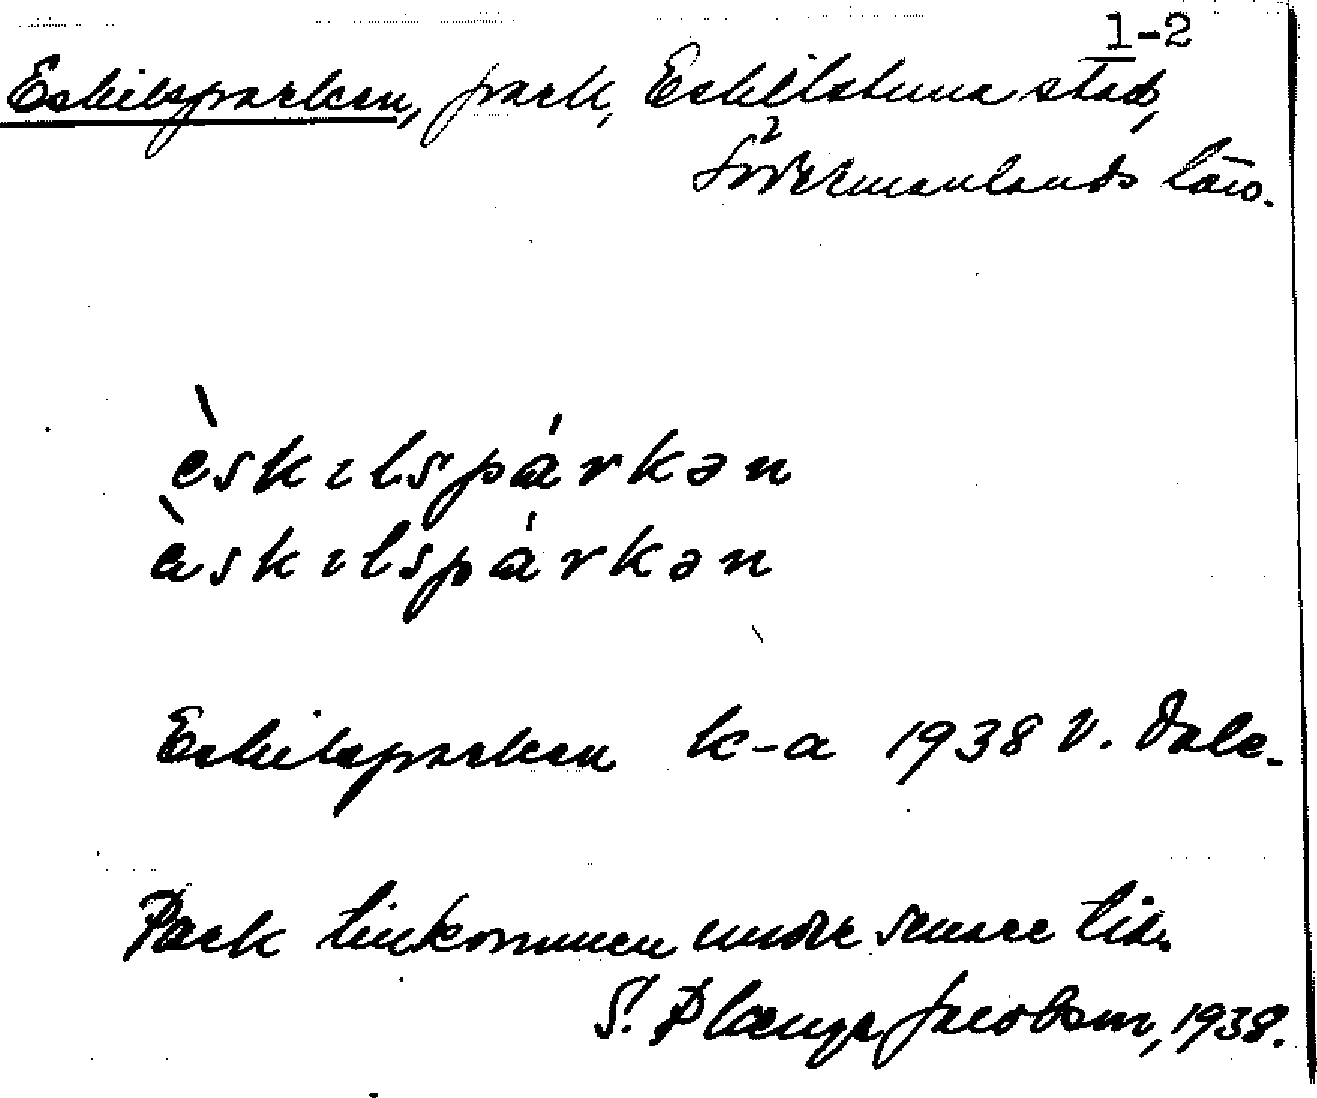 1-2
Eskilsparken, park, Eskilstuna stad,
2
Södermanlands län.
èskɪlspárkən
àskɪlspárkən
Eskilsparken k-a 1938 V. Dale.
Park tillkommen under senare tid.
S. Plænge Jacobson, 1938.